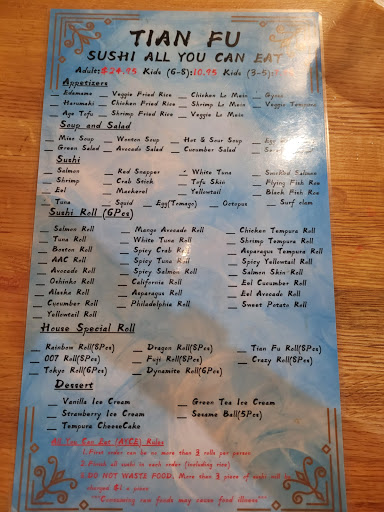 TIAN FU
SUSHI ALL YOU CAN EAT
Adult:$24.95 Kids (6-8):10.95 Kids (3-5):
Appetizers
Edamame Veggie Fried Rice Chicken Lo Mein Gyoza
Harumaki Chicken Fried Rice Shrimp Lo Mein Veggie Tempura
Age Tofu Shrimp Fried Rice Veggie Lo Mein
Soup and Salad
Miso Soup Wonton Soup Hot & Sour Soup Egg
Green Salad Avocado Salad Cucumber Salad
Sushi
Salmon Red Snapper White Tuna Smoked Salmon
Shrimp Crab Stick Tofu Skin Flying Fish Roe
Eel Mackerel Yellowtail Black Fish Roe
Tuna Squid Egg(Tamago) Octopus Surf clam
Sushi Roll (6Pcs)
Salmon Roll Mango Avocado Roll Chicken Tempura Roll
Tuna Roll White Tuna Roll Shrimp Tempura Roll
Boston Roll Spicy Crab Roll Asparagus Tempura Roll
AAC Roll Spicy Tuna Roll Spicy Yellowtail Roll
Avocado Roll Spicy Salmon Roll Salmon Skin Roll
Oshinko Roll California Roll Eel Cucumber Roll
Alaska Roll Asparagus Roll Eel Avocado Roll
Cucumber Roll Philadelphia Roll Sweet Potato Roll
Yellowtail Roll
House Special Roll
Rainbow Roll(8Pcs) Dragon Roll(8Pcs) Tian Fu Roll(8Pcs)
007 Roll(5Pcs) Fuji Roll(8Pcs) Crazy Roll(8Pcs)
Tokyo Roll(6Pcs) Dynamite Roll(6Pcs)
Dessert
Vanilla Ice Cream Green Tea Ice Cream
Strawberry Ice Cream Sesame Ball(5Pcs)
Tempura CheeseCake
All You Can Eat (AYCE) Rules
1.First order can be no more than 3 rolls per person
2.Finish all sushi in each order (including rice)
3.DO NOT WASTE FOOD. More than 3 piece of sushi will be
charged $1 a piece
***Consuming raw foods may cause food illness***